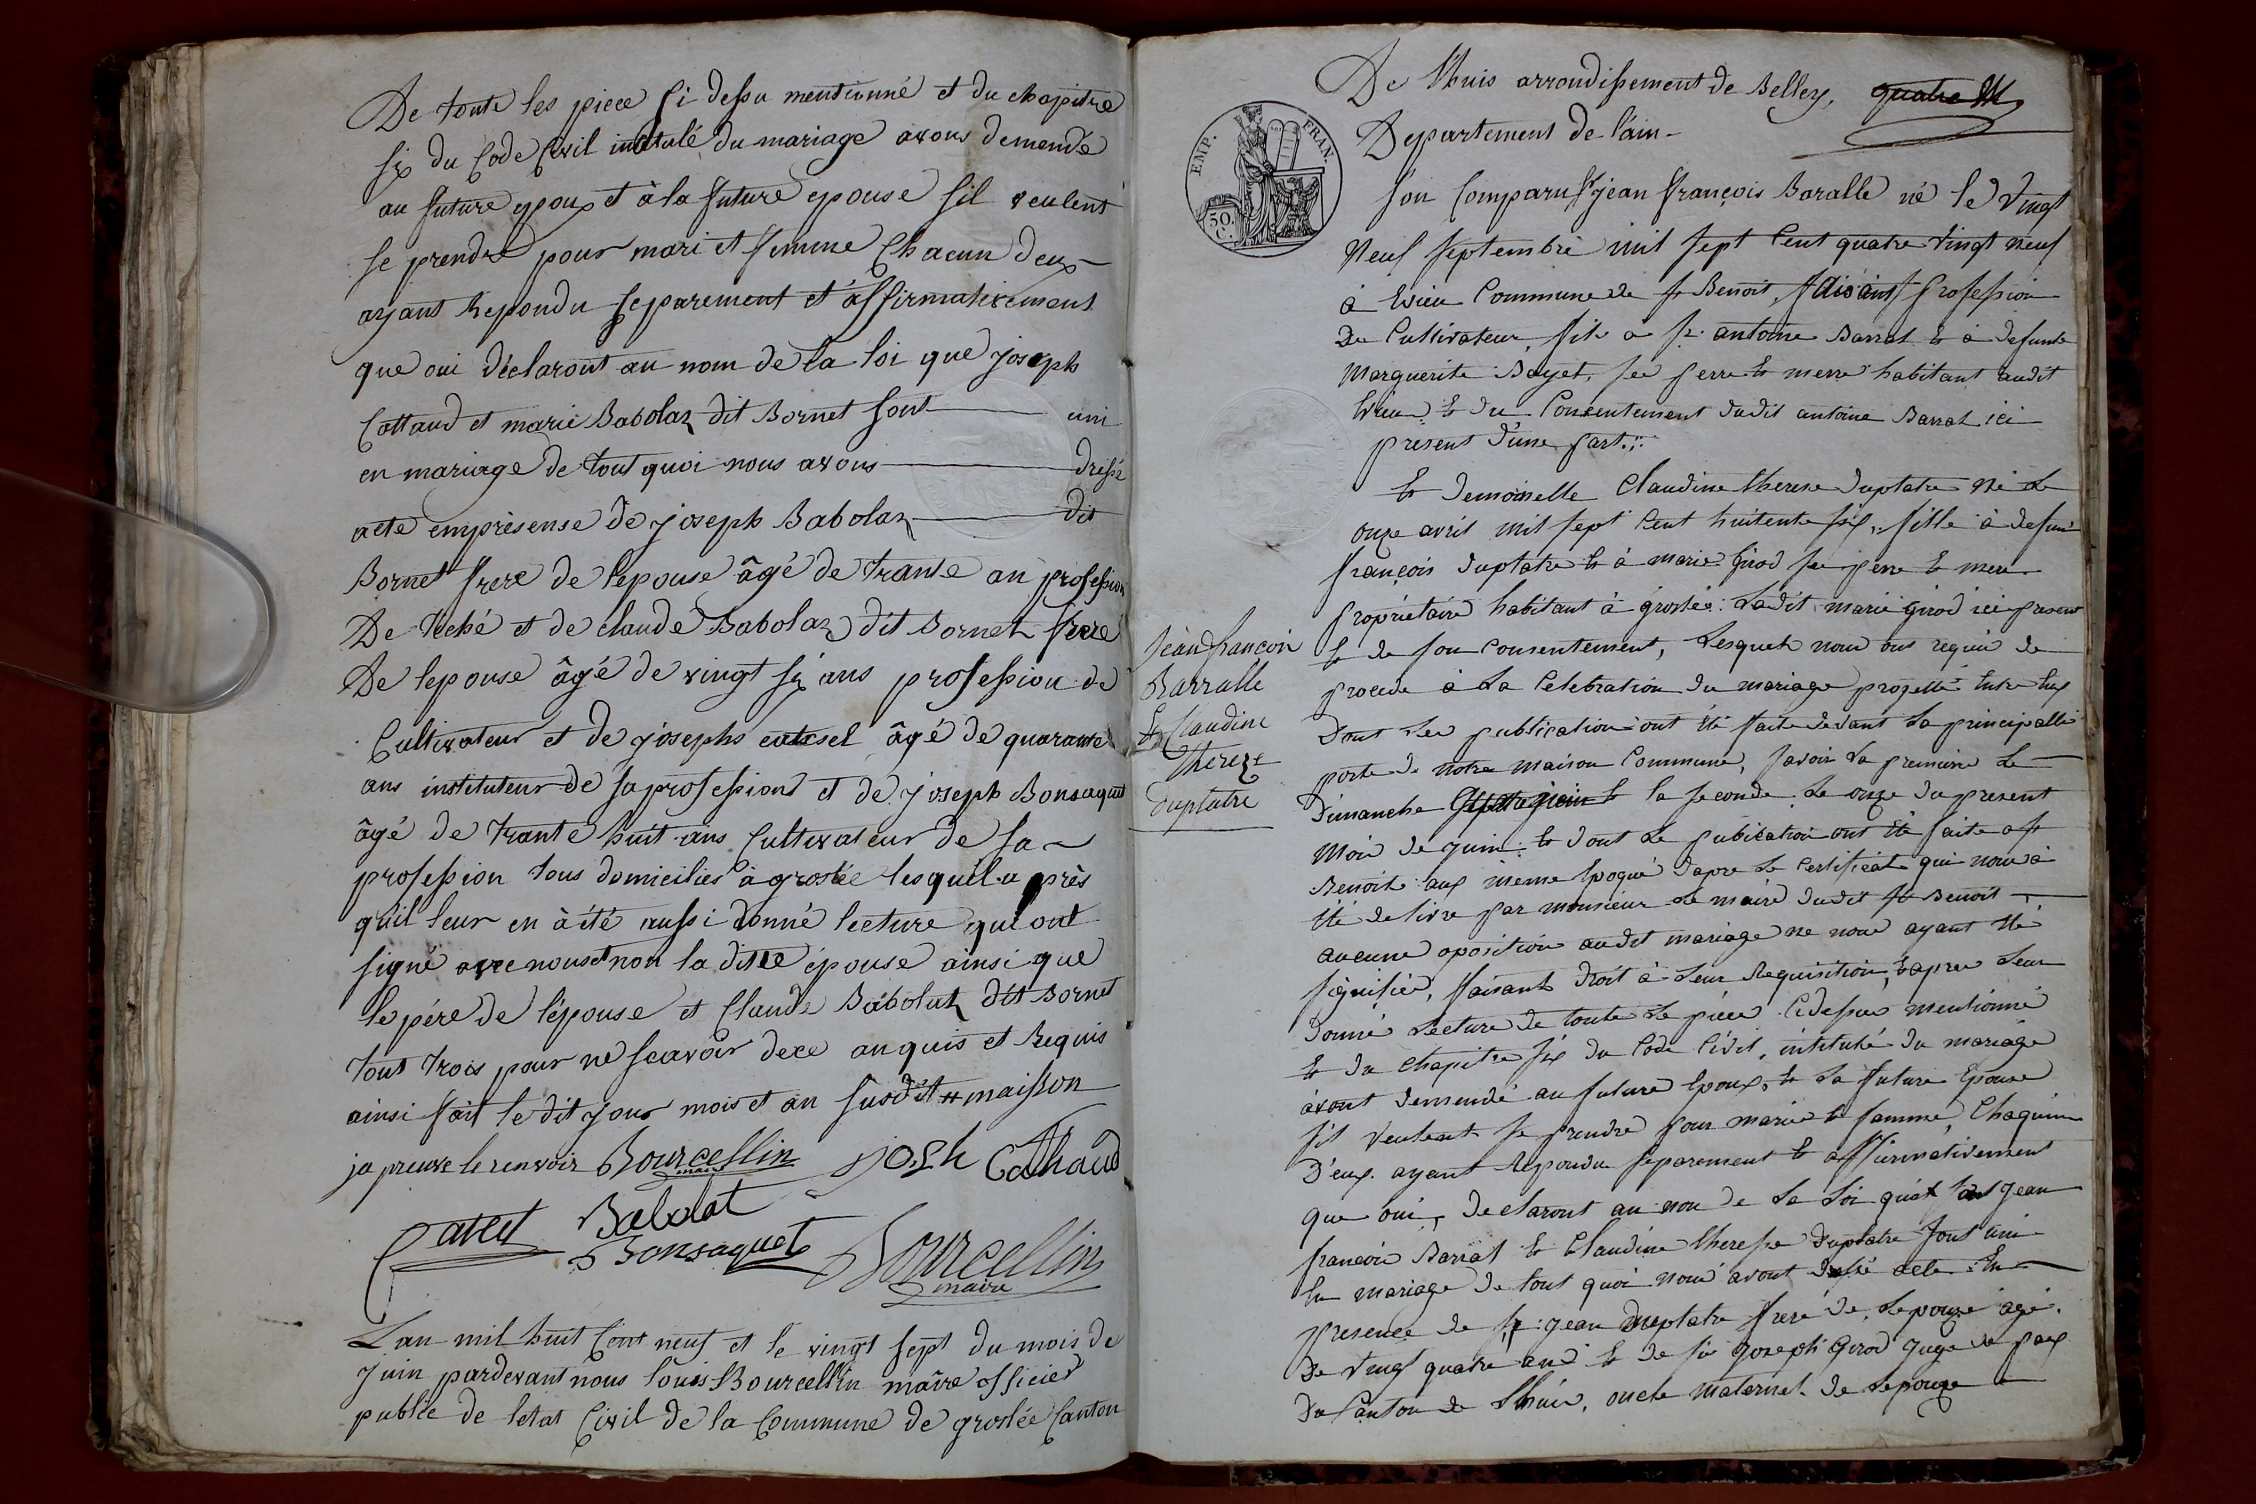 De toute les piece si dessu mentionné et du chapitre
six du Code Civil intitulé du mariage avons demendé
au future epoux et à la future epouse sil veulent
se prendre pour mari et femme Chacun deux
ayant Repondu separement et affirmativement
que oui déclaront au nom de la loi que joseph
Cottaud et marie Babolaz dit Bornet sont uni
en mariage de tout quoi nous avons dressé
acte emprèsense de joseph Babolaz dit
Bornet frere de lepouse âgé de trante an profession
De et de claude Babolaz dit Bornet frere
De lepouse âgé de vingt si ans profession de
Cultivateur et de josephs âgé de quarante
ans instituteur de sa profession et de joseph Bonsaquet
âgé de trante huit ans Cultivateur de sa
profession tous domiciliés a groslée lesquel a près
qu'il leur en à été aussi donné lecture qui ont
signé avre nous et non la ditte épouse ainsi que
le pére de l'épouse et Claude Babolaz dit Bornet
tout trois pour ne scavoir dece anquis et Requis
ainsi fait le dit jour mois et an susdit # maisson
japreuve le renvoir Bourcellin joseh Cathaud
maire
Catest Babolat
Bonsaquet Bourcellin
maire
Lan mil huit Cent neuf et le vingt sept du mois de
juin pardevant nous louis Bourcellin maire officier
publée de letat Civil de la Commune de groslée Canton
De Lhuis arrondissement de Belley, quatre
Departement de l'ain
EMP. FRAN.
50. C.
son Comparu Sr jean françois Baralle né le Vingt
Neuf septembre mil sept Cent quatre vingt neuf
à Evieu Commune de st Benoit, faisant profession
De Cultivateur, fils a sr antoine Barrat et à defunte
Marguerite Bayet, see perre et merre habitant audit
Evieu et du Consentement dudit antoine Barrat ici
présent d'une part.
Et demoiselle Claudine therese Duplatre né Le
onze avril mil sept Cent huitente six, fille à defunt
françois Duplatre et à marie Girod see pere et mere
Propriétaire habitant à groslée: Ladit marie girod ici present
et de son Consentement, Lesquels nous ont requis de
procede à La Celebration du mariage projetté Entre Eux
Dont Les publication ont été faite devant La principalle
porte de notre maison Commune, Savoir La premiere Le
Dimanche quatre juin et la seconde Le onze du present
Mois de juin: et dont Le publication ont été faite a st
Benoit aux meme Epoque dapre Le Certificat qui nous à
été delivre par monsieur Le maire dudit st Benoit
aucune oposition audit mariage ne nous ayant été
signifiée, faisant Droit à Leur Requisition, Et apres Leur
Donné Lecture de toute Le piece Cidessus mentionné
et du Chapitre six du Code Civil, intitulé du mariage
avont demendé au future Epoux, et La future Epouse
sil veulent se prendre pour marie et famme, Chaquun
D'eux ayant Repondu separement et affirmativement
que oui, declaront au non de La Loi que jean
françois Barrat et Claudine therese Duplatre sont uni
En mariage de tout quoi nous avont dressé acte En
presence de sr jean Duplatre frere de Lepouze agé
De Vingt quatre and et de sir Joseph Girod juge de paix
Du Canton de Lhuis, oncle maternel de Lepouze
jean francois
Barralle
Et Claudine
Thereze
Duplatre